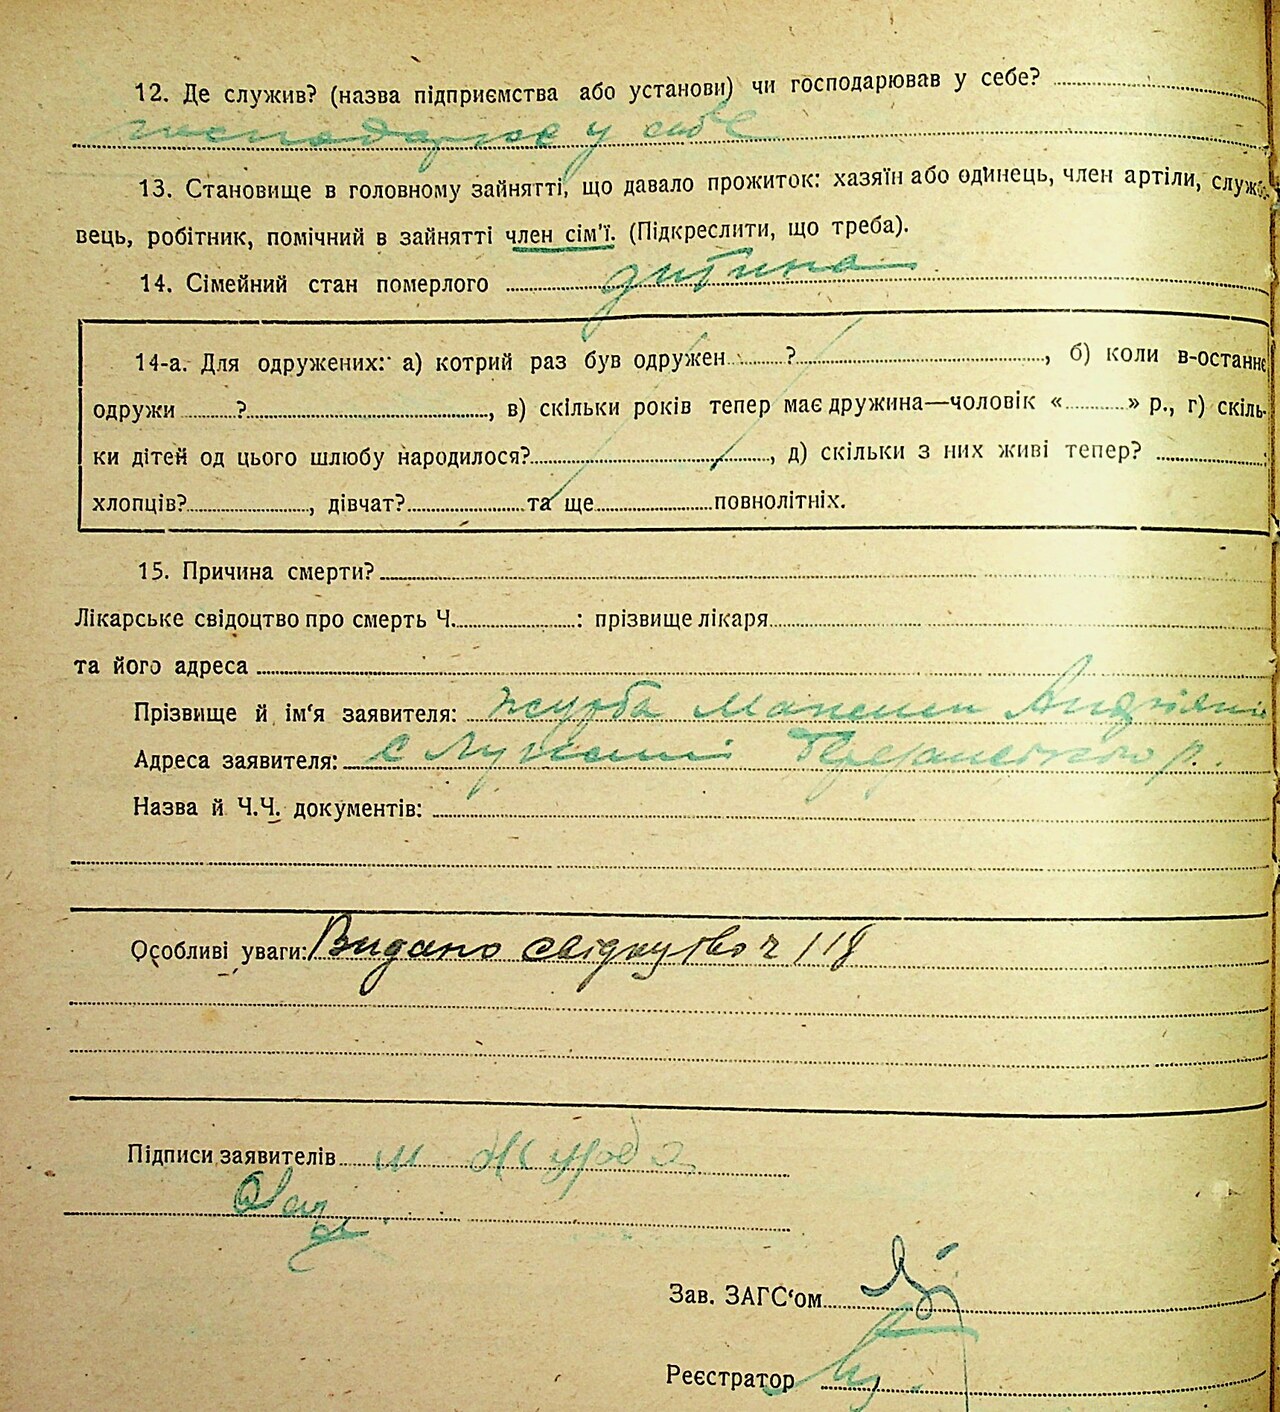 12. Де служив? (назва підприємства або установи) чи господарював у себе?
господарює у себе
13. Становище в головному зайнятті, що давало прожиток: хазяїн або одинець, член артіли, службо-
вець, робітник, помічний в зайнятті член сім'ї. (Підкреслити, що треба).
14. Сімейний стан померлого дитина
14-а. Для одружених: а) котрий раз був одружен ? , б) коли в-останнє
одружи ? , в) скільки років тепер має дружина—чоловік « » р., г) скіль-
ки дітей од цього шлюбу народилося? , д) скільки з них живі тепер?
хлопців? , дівчат? та ще повнолітніх.
15. Причина смерти?
Лікарське свідоцтво про смерть Ч. : прізвище лікаря
та його адреса
Прізвище й ім'я заявителя: Журба Максим
Адреса заявителя: с
Назва й Ч.Ч. документів:
Особливі уваги: Видано свідоцтво ч 118
Підписи заявителів м Журба
Зав. ЗАГС'ом
Реєстратор